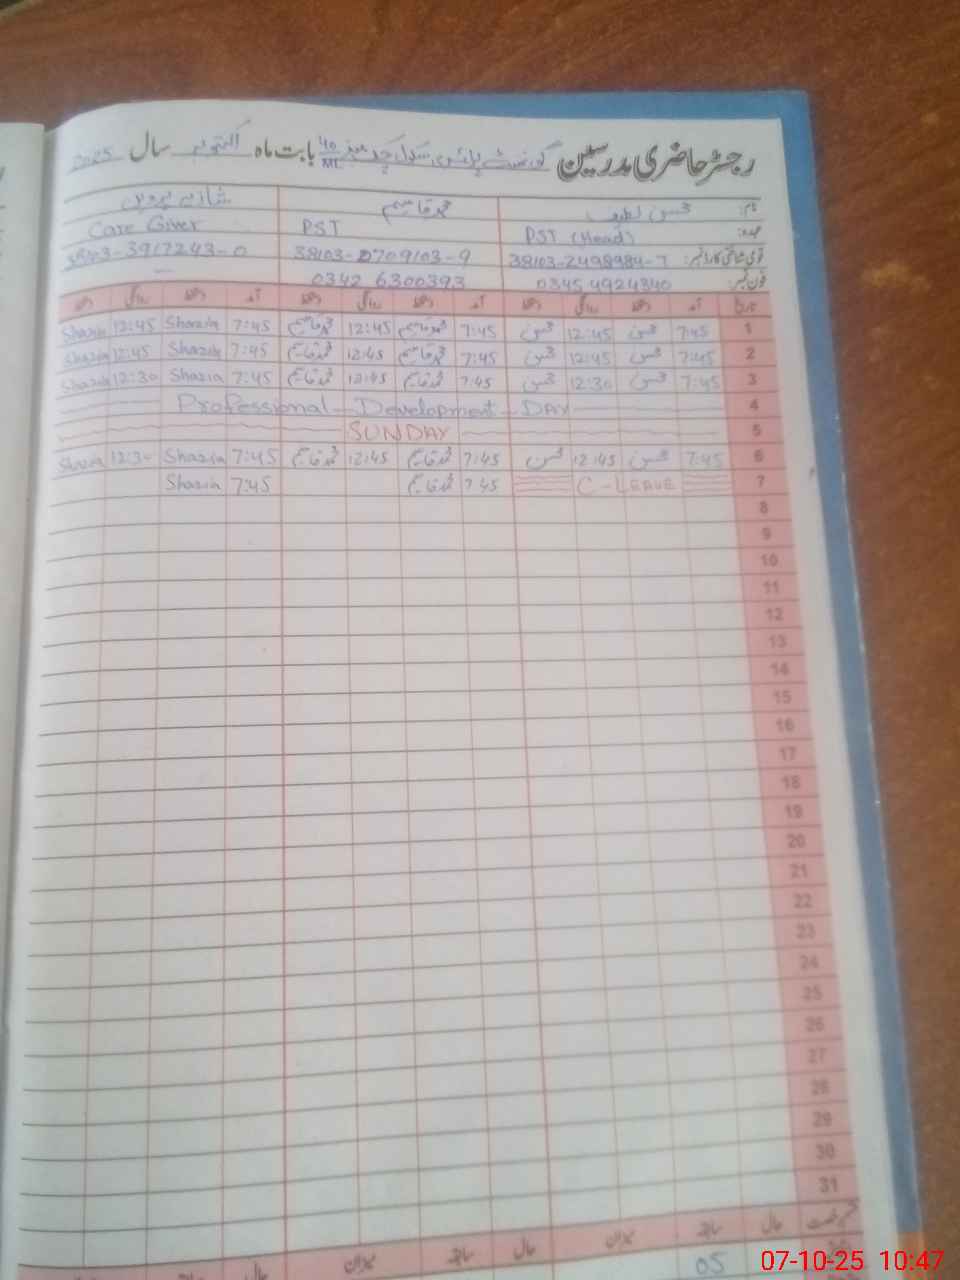 رجسٹر حاضری مدرسین گورنمنٹ پرائمری سکول چک نمبر 40/ML بابت ماہ اکتوبر سال 2025
نام: محسن لطیف محمد قاسم شازیہ پروین
عہدہ: PST (Head) PST Care Giver
قومی شناختی کارڈ نمبر: 38103-2498984-7 38103-0709103-9
فون نمبر: 0345 4924340 0342 6300393 —
تاریخ آمد دستخط روانگی دستخط آمد دستخط روانگی دستخط آمد دستخط روانگی دستخط
1 7:45 محسن 12:45 محسن 7:45 محمد قاسم 12:45 محمد قاسم 7:45 Shazia 12:45 Shazia
2 7:45 محسن 12:45 محسن 7:45 محمد قاسم 12:45 محمد قاسم 7:45 Shazia 12:45 Shazia
3 7:45 محسن 12:30 محسن 7:45 محمد قاسم 12:45 محمد قاسم 7:45 Shazia 12:30 Shazia
4 Professional Development DAY
5 SUNDAY
6 7:45 محسن 12:45 محسن 7:45 محمد قاسم 12:45 محمد قاسم 7:45 Shazia 12:30 Shazia
7 C-LEAVE 7:45 محمد قاسم 7:45 Shazia
8
9
10
11
12
13
14
15
16
17
18
19
20
21
22
23
24
25
26
27
28
29
30
31
حال سابقہ میزان حال سابقہ میزان حال سابقہ
05
07-10-25 10:47